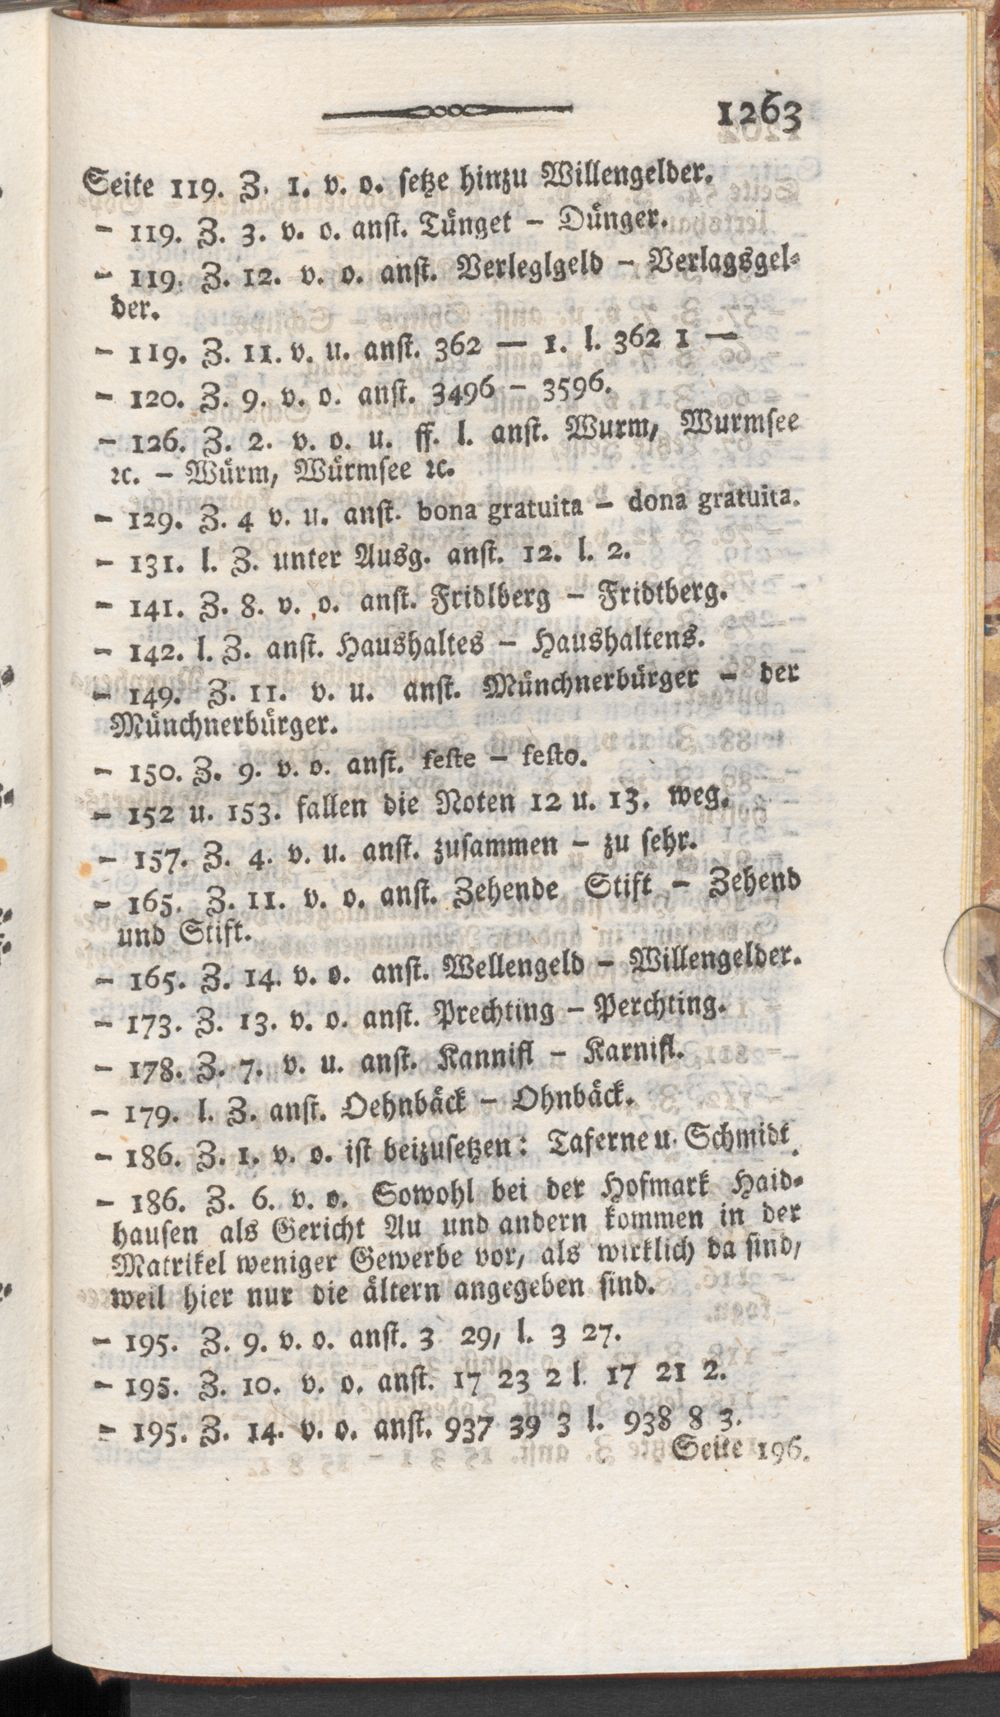 1263
Seite 119. Z. 1. v. o. setze hinzu Willengelder.
- 119. Z. 3. v. o. anst. Tünget - Dünger.
- 119. Z. 12. v. o. anst. Verleglgeld - Verlagsgel-
der.
- 119. Z. 11. v. u. anst. 362 — 1. l. 362 1 —
- 120. Z. 9. v. o. anst. 3496 - 3596.
- 126. Z. 2. v. o. u. ff. l. anst. Wurm, Wurmsee
ꝛc. - Würm, Würmsee ꝛc.
- 129. Z. 4 v. u. anst. bona gratuita - dona gratuita.
- 131. l. Z. unter Ausg. anst. 12. l. 2.
- 141. Z. 8. v. o. anst. Fridlberg - Fridtberg.
- 142. l. Z. anst. Haushaltes - Haushaltens.
- 149. Z. 11. v. u. anst. Münchnerbürger - der
Münchnerbürger.
- 150. Z. 9. v. o. anst. feste - festo.
- 152 u. 153. fallen die Noten 12 u. 13. weg.
- 157. Z. 4. v. u. anst. zusammen - zu sehr.
- 165. Z. 11. v. o. anst. Zehende Stift - Zehend
und Stift.
- 165. Z. 14. v. o. anst. Wellengeld - Willengelder.
- 173. Z. 13. v. o. anst. Prechting - Perchting.
- 178. Z. 7. v. u. anst. Kannifl - Karnifl.
- 179. l. Z. anst. Oehnbäck - Ohnbäck.
- 186. Z. 1. v. o. ist beizusetzen: Taferne u. Schmidt.
- 186. Z. 6. v. o. Sowohl bei der Hofmark Haid-
hausen als Gericht Au und andern kommen in der
Matrikel weniger Gewerbe vor, als wirklich da sind,
weil hier nur die ältern angegeben sind.
- 195. Z. 9. v. o. anst. 3 29, l. 3 27.
- 195. Z. 10. v. o. anst. 17 23 2 l. 17 21 2.
- 195. Z. 14. v. o. anst. 937 39 3 l. 938 8 3.
Seite 196.